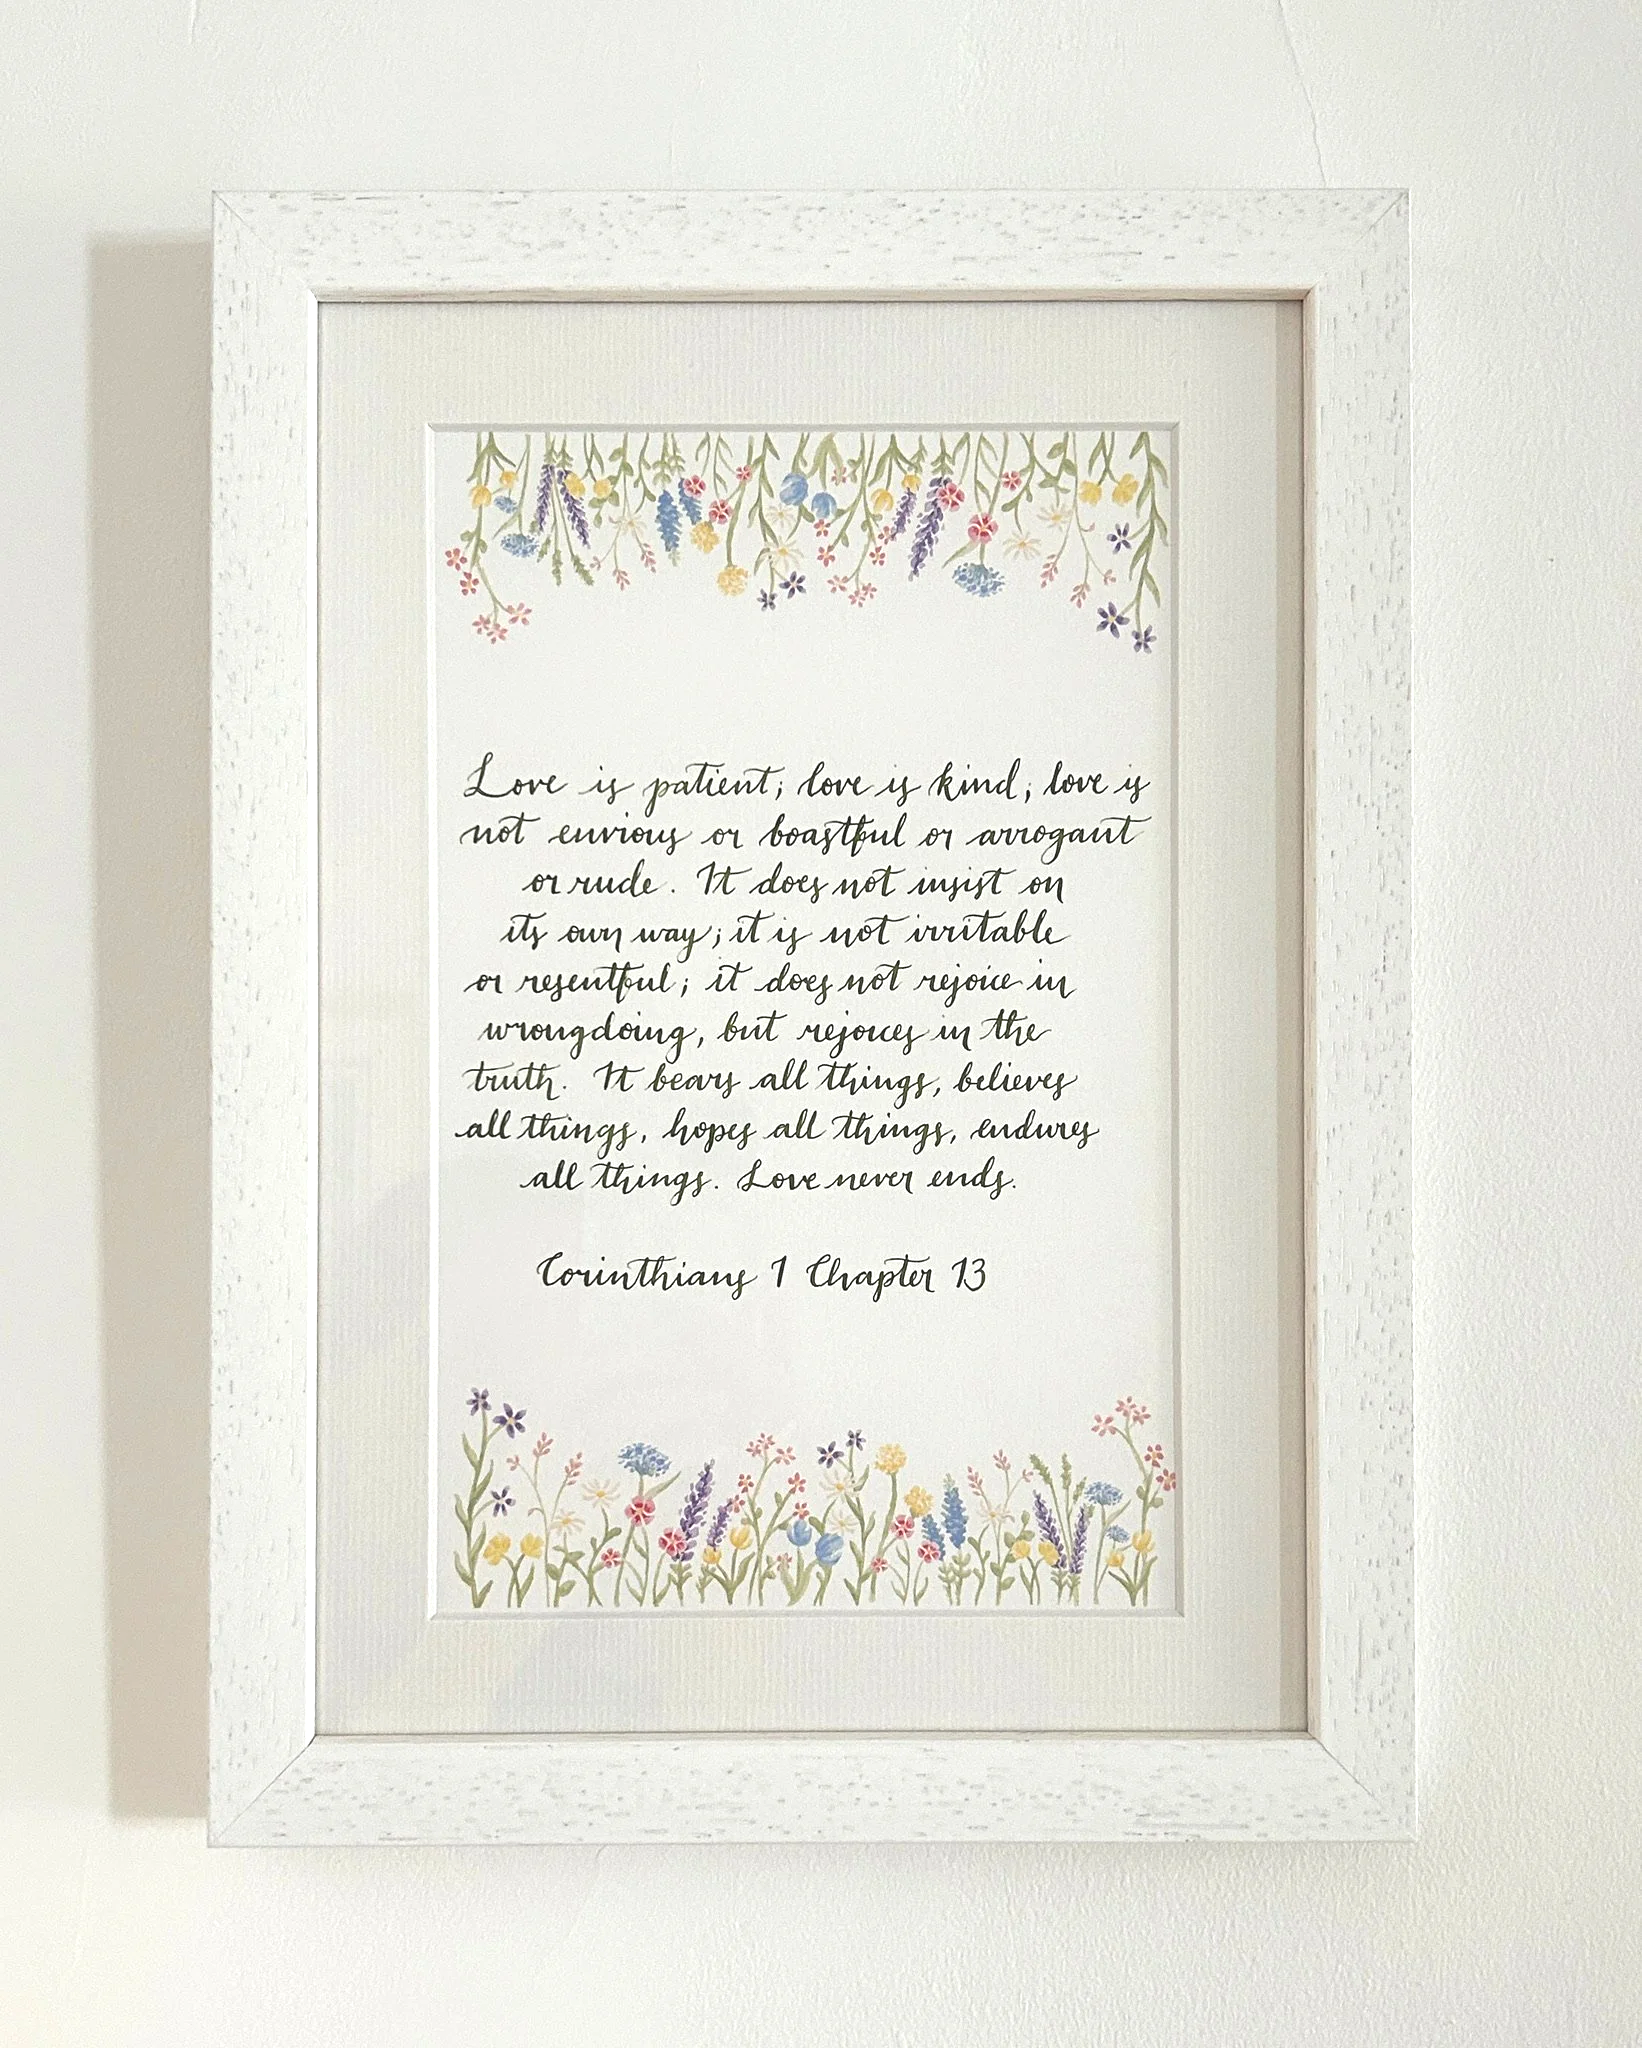 Love is patient; love is kind; love is
not envious or boastful or arrogant
or rude. It does not insist on
its own way; it is not irritable
or resentful; it does not rejoice in
wrongdoing, but rejoices in the
truth. It bears all things, believes
all things, hopes all things, endures
all things. Love never ends.
Corinthians 1 Chapter 13